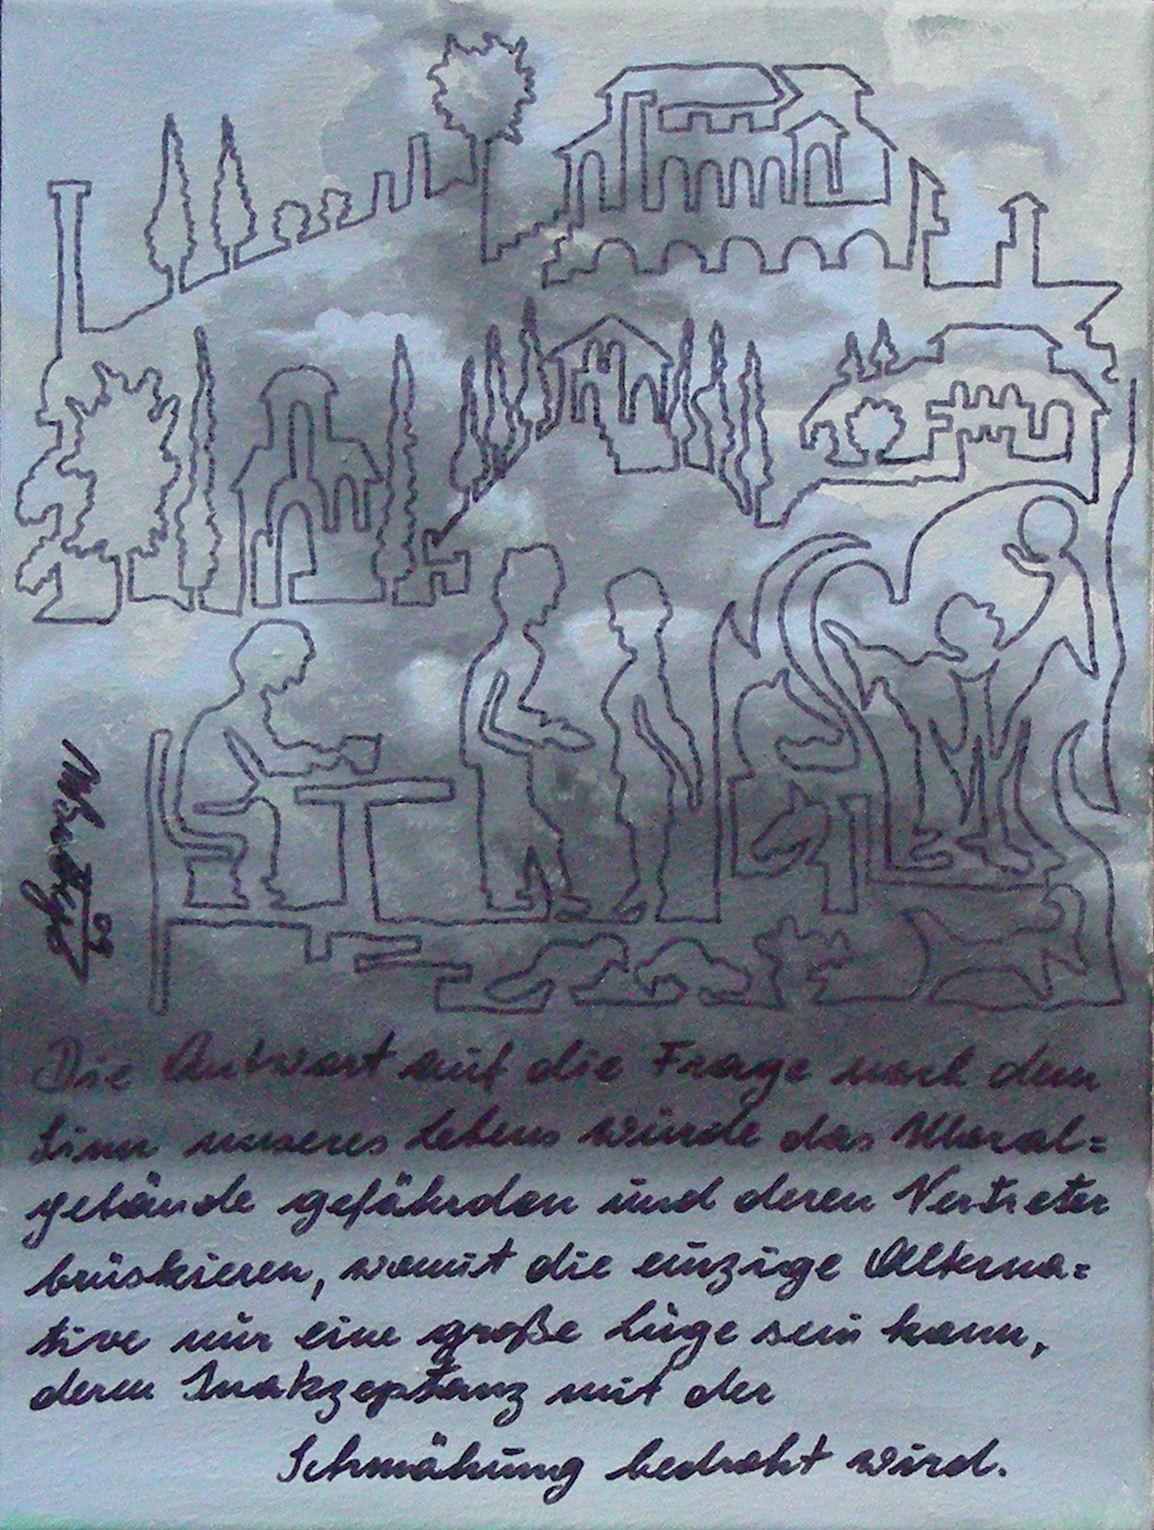 Die Antwort auf die Frage nach dem
Sinn unseres Lebens würde das Moral=
gebäude gefährden und deren Vertreter
brüskieren, womit die einzige Alterna=
tive nur eine große Lüge sein kann,
deren Inakzeptanz mit der
Schmähung bedroht wird.
09